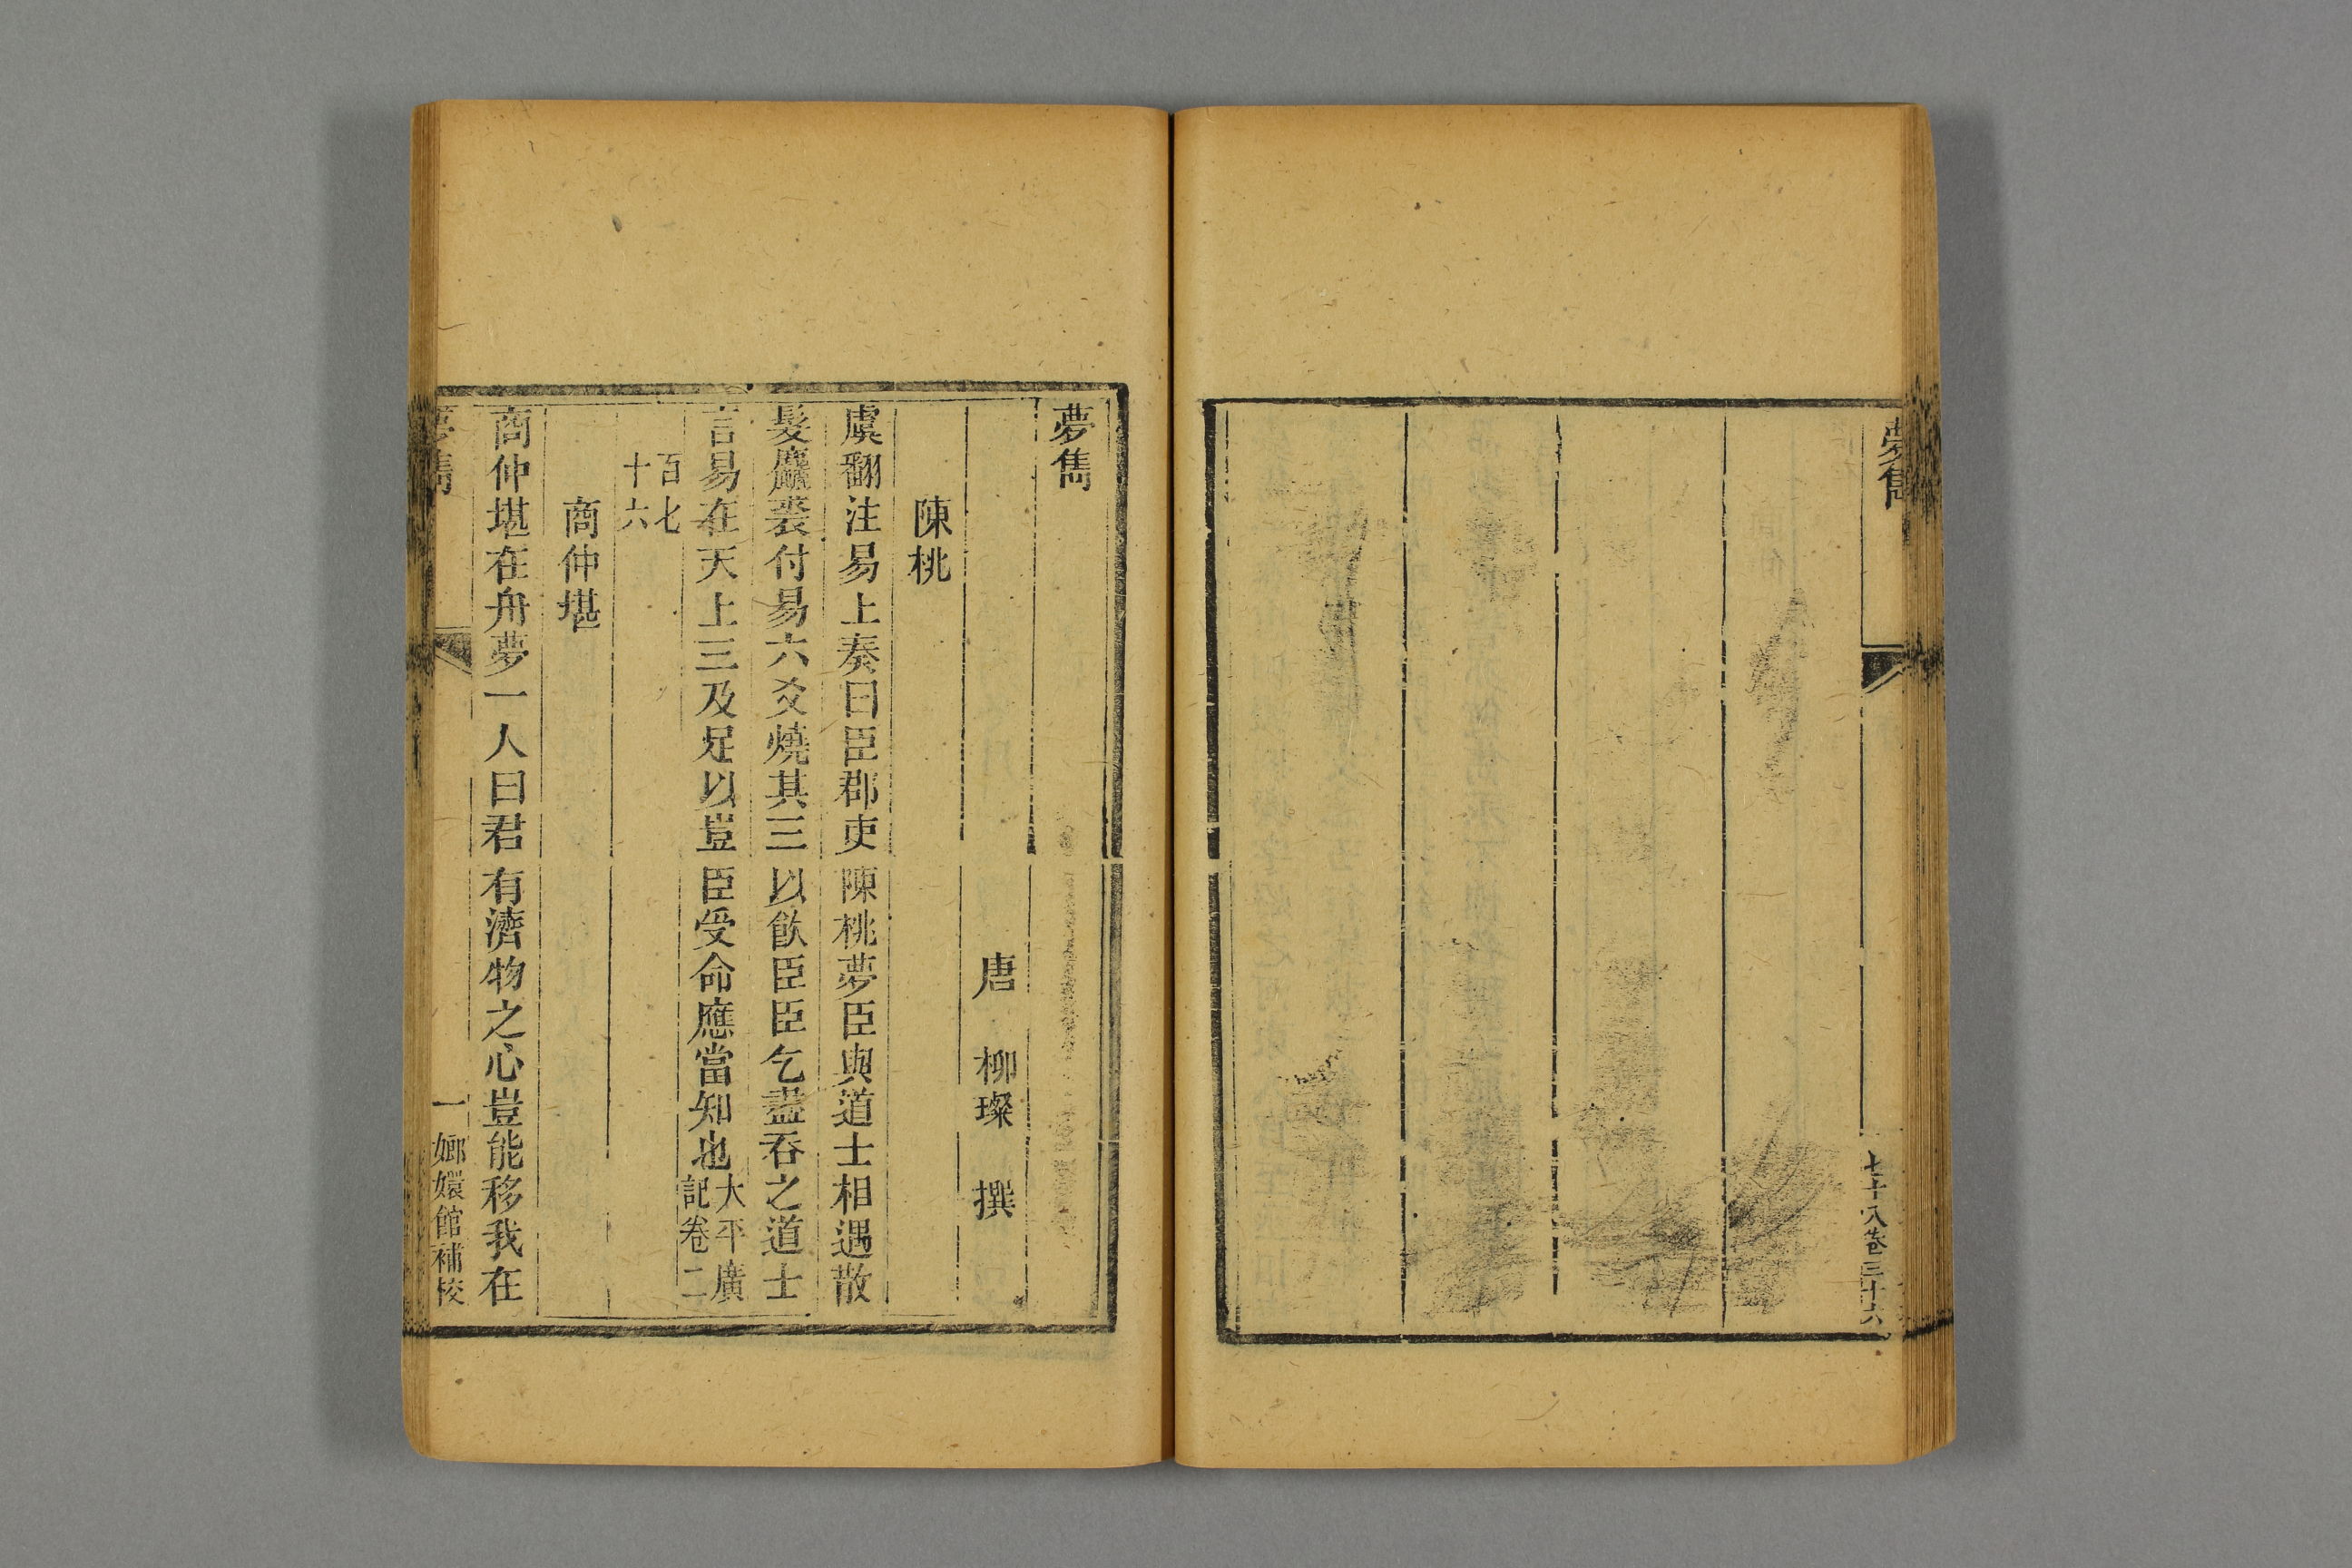 夢雋
七十八卷三十六
夢雋
唐　柳璨　撰
陳桃
虞翻注易上奏曰臣郡吏陳桃夢臣與道士相遇散
髮麤裘付易六爻燒其三以飲臣臣乞盡吞之道士
言易在天上三及足以豈臣受命應當知也大平廣記卷二
百七十六
商仲堪
商仲堪在舟夢一人曰君有濟物之心豈能移我在
夢雋
一
嫏嬛館補校